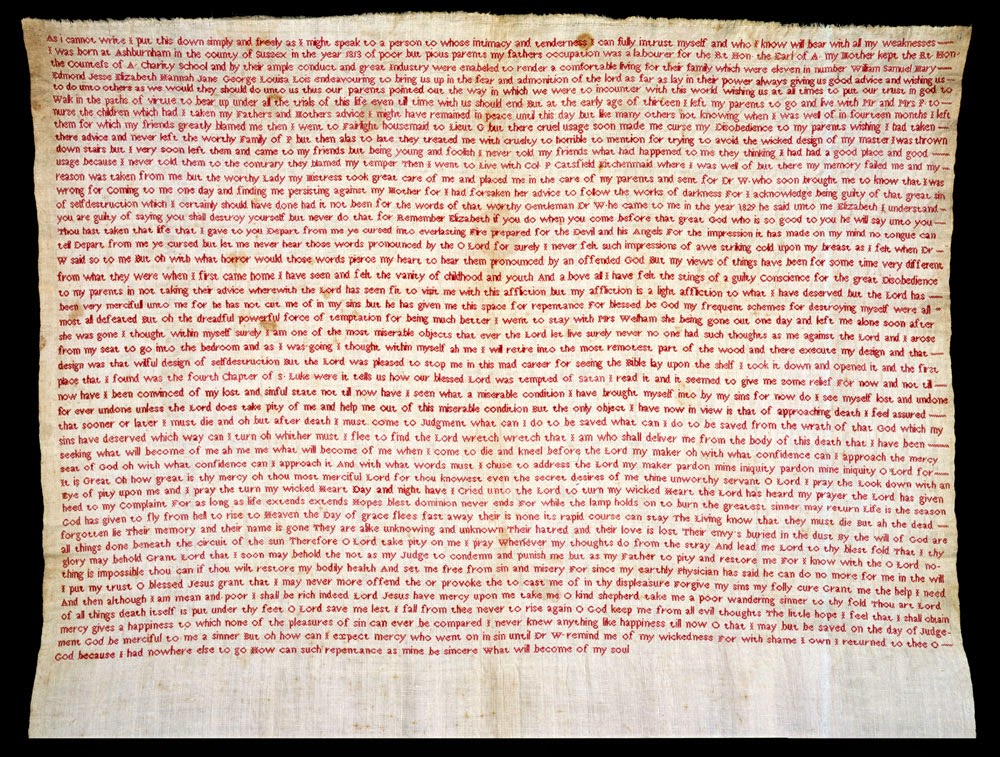 As i cannot write I put this down simply and freely as I might speak to a person to whose intimacy and tenderness I can fully intrust myself and who I know will bear with all my weaknesses —
I was born at Ashburnham in the county of Sussex in the year 1813 of poor but pious parents my fathers occupation was a labourer for the Rt Hon the Earl of A my Mother kept the Rt Hon
the Countess of A Charity School and by their ample conduct and great Industry were enabeled to render a comfortable living for their family which were eleven in number William Samuel Mary —
Edmond Jesse Elizabeth Hannah Jane George Louisa Lois endeavouring to bring us up in the fear and admonition of the lord as far as lay in their power always giving us good advice and wishing us —
to do unto others as we would they should do unto us thus our parents pointed out the way in which we were to incounter with this world wishing us at all times to put our trust in god to
Walk in the paths of virtue to bear up under all the trials of this life even till time with us should end But at the early age of thirteen I left my parents to go and live with Mr and Mrs P to —
nurse the children which had I taken my Fathers and Mothers advice I might have remained in peace until this day but like many others not knowing when I was well of in fourteen months I left
them for which my friends greatly blamed me then I went to Fairlight housemaid to Lieut G but there cruel usage soon made me curse my Disobedience to my parents wishing I had taken —
there advice and never left the worthy Family of P but then alas to late they treated me with cruelty to horrible to mention for trying to avoid the wicked design of my master I was thrown
down stairs but I very soon left them and came to my friends but being young and foolish I never told my friends what had happened to me they thinking I had had a good place and good —
usage because I never told them to the contrary they blamed my temper Then I went to live with Col P Catsfield kitchenmaid where I was well of but there my memory failed me and my —
reason was taken from me but the worthy Lady my Mistress took great care of me and placed me in the care of my parents and sent for Dr W who soon brought me to know that I was
wrong for Coming to me one day and finding me persisting against my Mother for I had forsaken her advice to follow the works of darkness For I acknowledge being guilty of that great sin
of selfdestruction which I certainly should have done had it not been for the words of that worthy Gentleman Dr W he came to me in the year 1829 he said unto me Elizabeth I understand —
you are guilty of saying you shall destroy yourself but never do that for Remember Elizabeth if you do when you come before that great God who is so good to you he will say unto you —
Thou hast taken that life that I gave to you Depart from me ye cursed into everlasting Fire prepared for the Devil and his Angels For the impression it has made on my mind no tongue can
tell Depart from me ye cursed but let me never hear those words pronounced by the O Lord for surely I never felt such impressions of awe striking cold upon my breast as I felt when Dr —
W said so to me But oh with what horror would those words pierce my heart to hear them pronounced by an offended God But my views of things have been for some time very different
from what they were when I first came home I have seen and felt the vanity of childhood and youth And a bove all I have felt the stings of a guilty Conscience for the great Disobedience
to my parents in not taking their advice wherewith the Lord has seen fit to visit me with this affliction but my affliction is a light affliction to what I have deserved but the Lord has —
been very merciful unto me for he has not cut me of in my sins but he has given me this space for repentance For blessed be God my frequent schemes for destroying myself were all —
most all defeated But oh the dreadful powerful force of temptation for being much better I went to stay with Mrs Welham she being gone out one day and left me alone soon after
she was gone I thought within myself surely I am one of the most miserable objects that ever the Lord let live surely never no one had such thoughts as me against the Lord and I arose
from my seat to go into the bedroom and as I was going I thought within myself ah me I will retire into the most remotest part of the wood and there execute my design and that —
design was that wilful design of selfdestruction But the Lord was pleased to stop me in this mad career for seeing the Bible lay upon the shelf I took it down and opened it and the first
place that I found was the fourth Chapter of S. Luke were it tells us how our blessed Lord was tempted of Satan I read it and it seemed to give me some relief For now and not til —
now have I been convinced of my lost and sinful state not till now have I seen what a miserable condition I have brought myself into by my sins for now do I see myself lost and undone
for ever undone unless the Lord does take pity of me and help me out of this miserable condition But the only object I have now in view is that of approaching death I feel assured —
that sooner or later I must die and oh but after death I must come to Judgment what can I do to be saved what can I do to be saved from the wrath of that God which my
sins have deserved which way can I turn oh whither must I flee to find the Lord wretch wretch that I am who shall deliver me from the body of this death that I have been —
seeking what will become of me ah me me what will become of me when I come to die and kneel before the Lord my maker oh with what confidence can I approach the mercy
seat of God oh with what confidence can I approach it And with what words must I chuse to address the Lord my maker pardon mine iniquity pardon mine iniquity O Lord for —
It is Great Oh how great is thy mercy oh thou most merciful Lord for thou knowest even the secret desires of me thine unworthy servant O Lord I pray the Look down with an
Eye of pity upon me and I pray the turn my wicked Heart Day and night have I Cried unto the Lord to turn my wicked Heart the Lord has heard my prayer the Lord has given
heed to my Complaint For as long as life extends extends Hopes blest dominion never ends For while the lamp holds on to burn the greatest sinner may return Life is the season
God has given to fly from hell to rise to Heaven the Day of grace flees fast away their is none its rapid course can stay The Living know that they must die But ah the dead —
forgotten lie Their memory and their name is gone They are alike unknowing and unknown Their hatred and their love is lost Their envy's buried in the dust By the will of God are
all things done beneath the circuit of the sun Therefore O Lord take pity on me I pray Whenever my thoughts do from the stray And lead me Lord to thy blest fold That I thy
glory may behold Grant Lord that I soon may behold the not as my Judge to condemn and punish me but as my Father to pity and restore me For I know with the O Lord no-
thing is impossible thou can if thou wilt restore my bodily health And set me free from sin and misery For since my earthly Physician has said he can do no more for me in the will
I put my trust O blessed Jesus grant that I may never more offend the or provoke the to cast me of in thy displeasure Forgive my sins my folly cure Grant me the help I need
And then although I am mean and poor I shall be rich indeed Lord Jesus have mercy upon me take me O kind shepherd take me a poor wandering sinner to thy fold Thou art Lord
of all things death itself is put under thy feet O Lord save me lest I fall from thee never to rise again O God keep me from all evil thoughts The little hope I feel that I shall obtain
mercy gives a happiness to which none of the pleasures of sin can ever be compared I never knew anything like happiness till now O that I may but be saved on the day of Judge-
ment God be merciful to me a sinner But oh how can I expect mercy who went on in sin until Dr W remind me of my wickedness For with shame I own I returned to thee O —
God because I had nowhere else to go How can such repentance as mine be sincere What will become of my soul